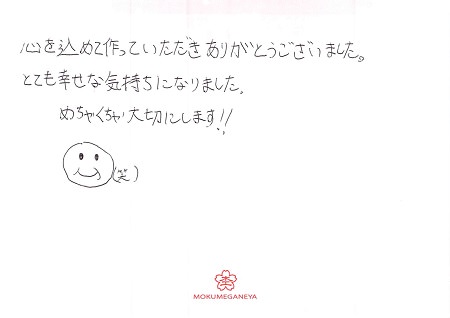 心を込めて作っていただきありがとうございました。
とても幸せな気持ちになりました。
めちゃくちゃ大切にします!!
(笑)
MOKUMEGANEYA